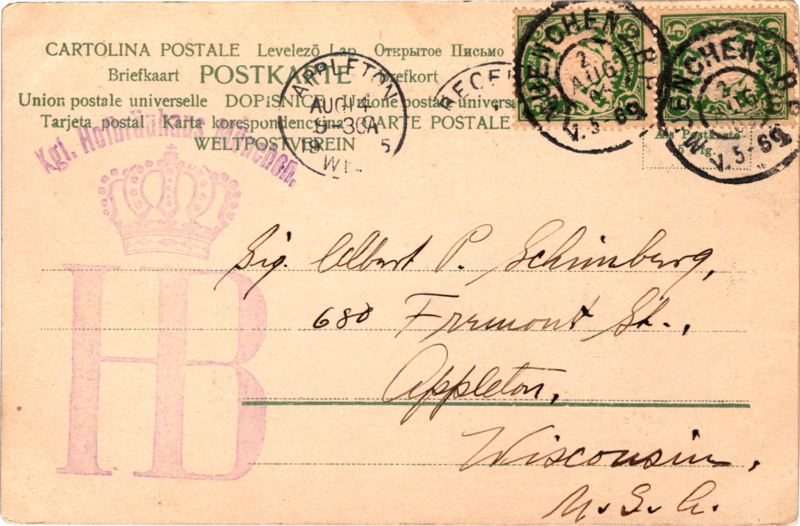 CARTOLINA POSTALE Levelező Lap Открытое Письмо
Briefkaart POSTKARTE Brefkort
Union postale universelle DOPiSNICE Unione postale universale
Tarjeta postal Karta korespondencyjna CARTE POSTALE
WELTPOSTVEREIN
APPLETON
AUG 14
9-30A
WI
5
RECEI
MUENCHEN 2 B.P.
2
AUG
V. 5-6
MUENCHEN 2 B.P.
2
AUG
V. 5-6
5
5
Als Postkarte
5 Pfg.
Kgl. Hofbräuhaus München.
HB
Sig. Albert P. Schimberg,
680 Fremont St.,
Appleton,
Wisconsin,
U.S.A.